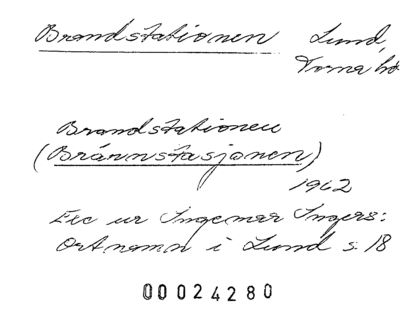 Brandstationen Lund,
Torna hd
Brandstationen
(Brännstasjonen)
1962
Exc ur Ingemar Ingers:
Ortnamn i Lund s. 18
00024280